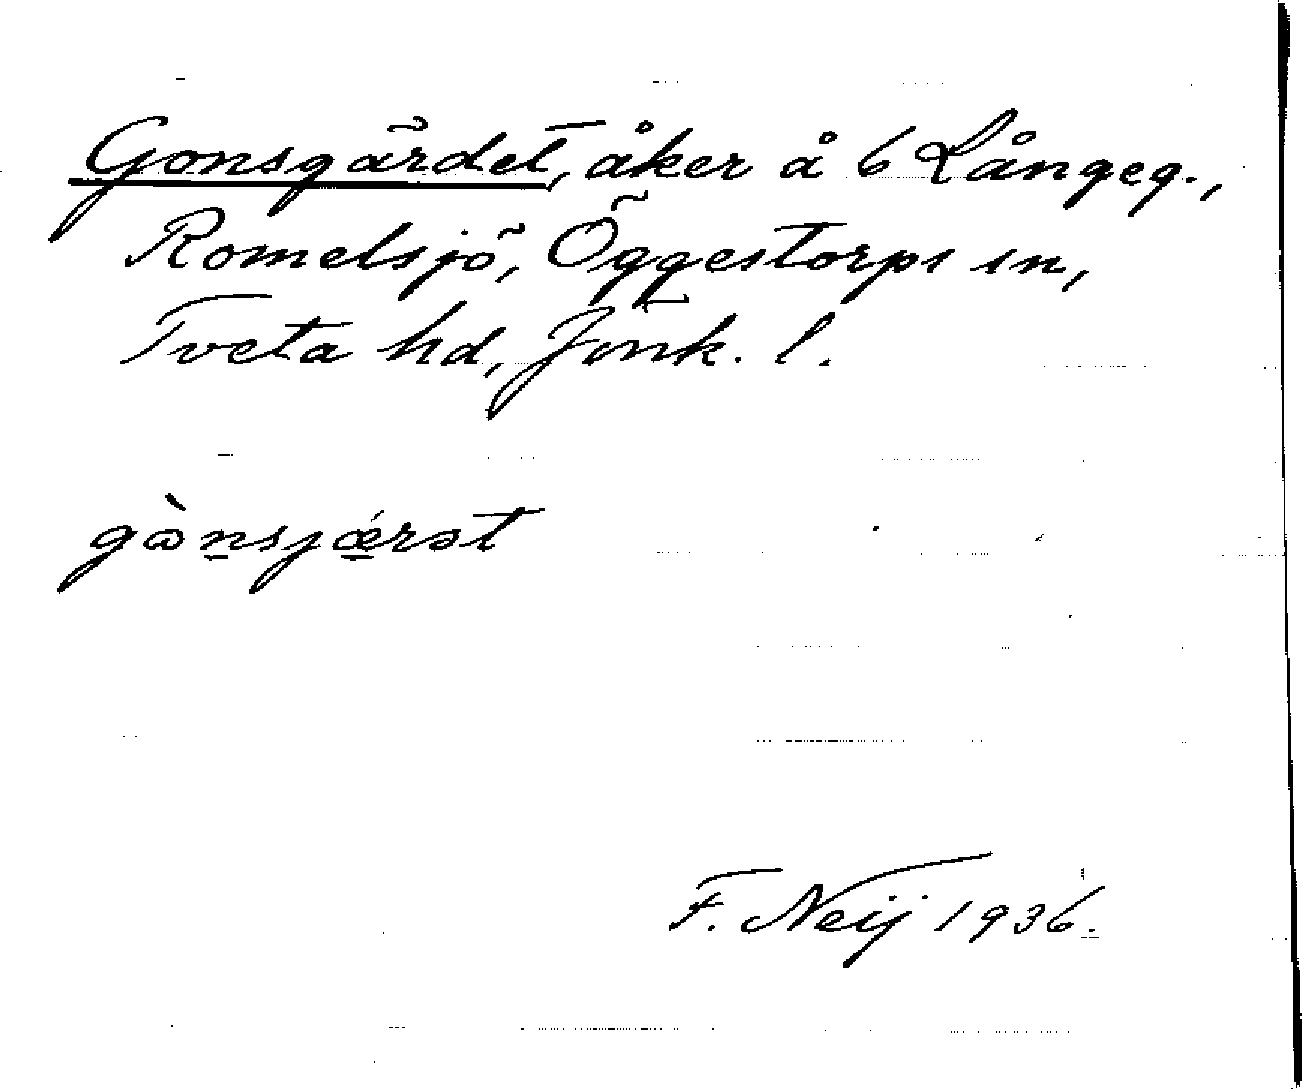 Gonsgärdet, åker å 6 Långeg.,
Romelsjö, Öggestorps sn,
Tveta hd, Jönk. l.
gɷ̀n̠sjǽ̠rət
F. Neij 1936.